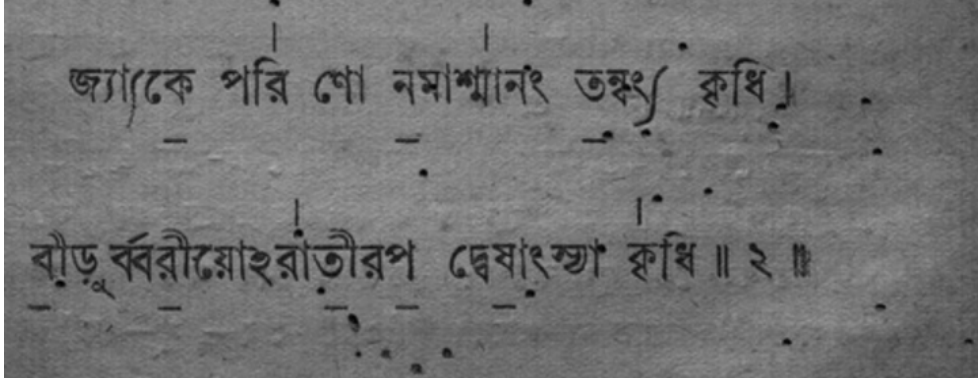 জ্যাকে পরি ণো নমাশ্মানং তন্বং কৃধি।
বীড়ুর্ব্বরীয়োঽরাতীরপ দ্বেষাংস্যা কৃধি॥ ২ ॥